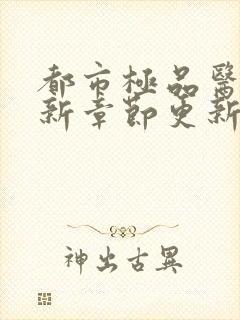 都市極品醫
新章節更新
神出古異